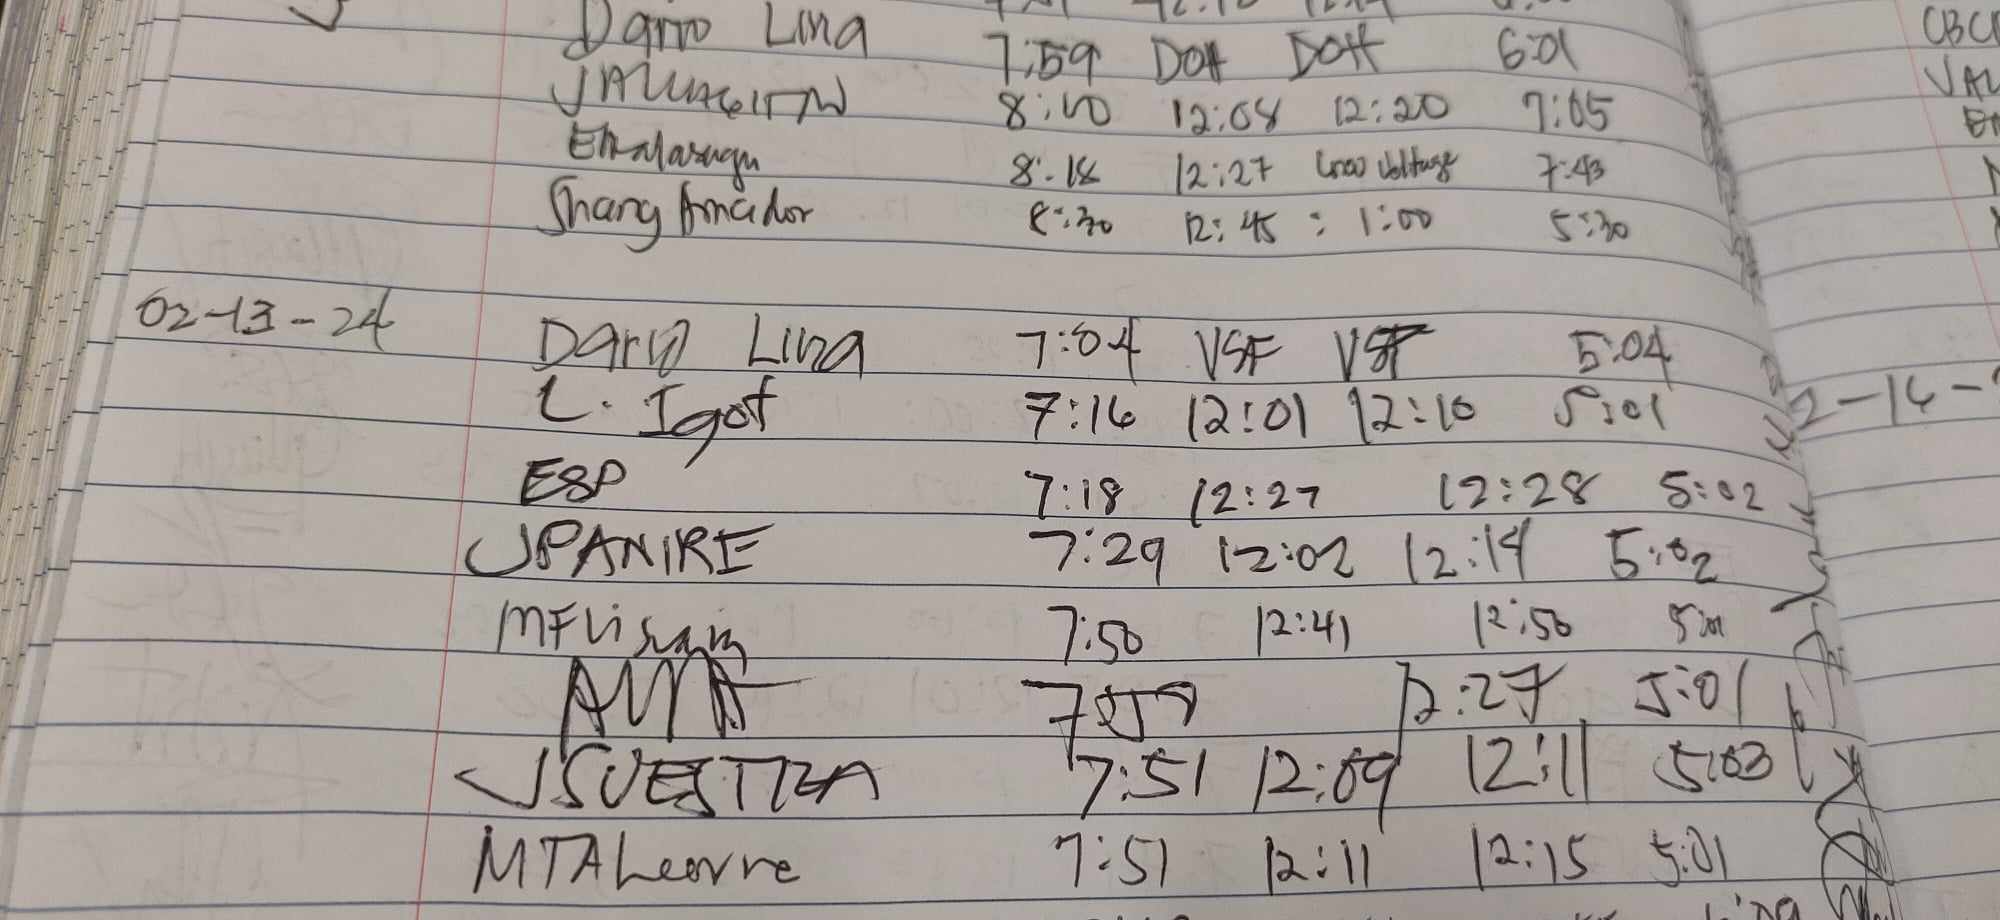 Dario Lina 7:59 DOH DOH 6:01
8:10 12:08 12:20 7:05
8:18 12:27 Low Voltage 7:43
Shang Amador 8:30 12:45 : 1:00 5:30
02-13-24 Dario Lina 7:04 VSF VSF 5:04
L. Igot 7:16 12:01 12:10 5:01
ESP 7:18 12:27 12:28 5:02
JPANIRE 7:29 12:02 12:14 5:02
7:50 12:41 12:50 5:01
12:27 5:01
JSUESTRA 7:51 12:09 12:11 5:03
MTALeorne 7:51 12:11 12:15 5:01
CBC
JAL
2-14-